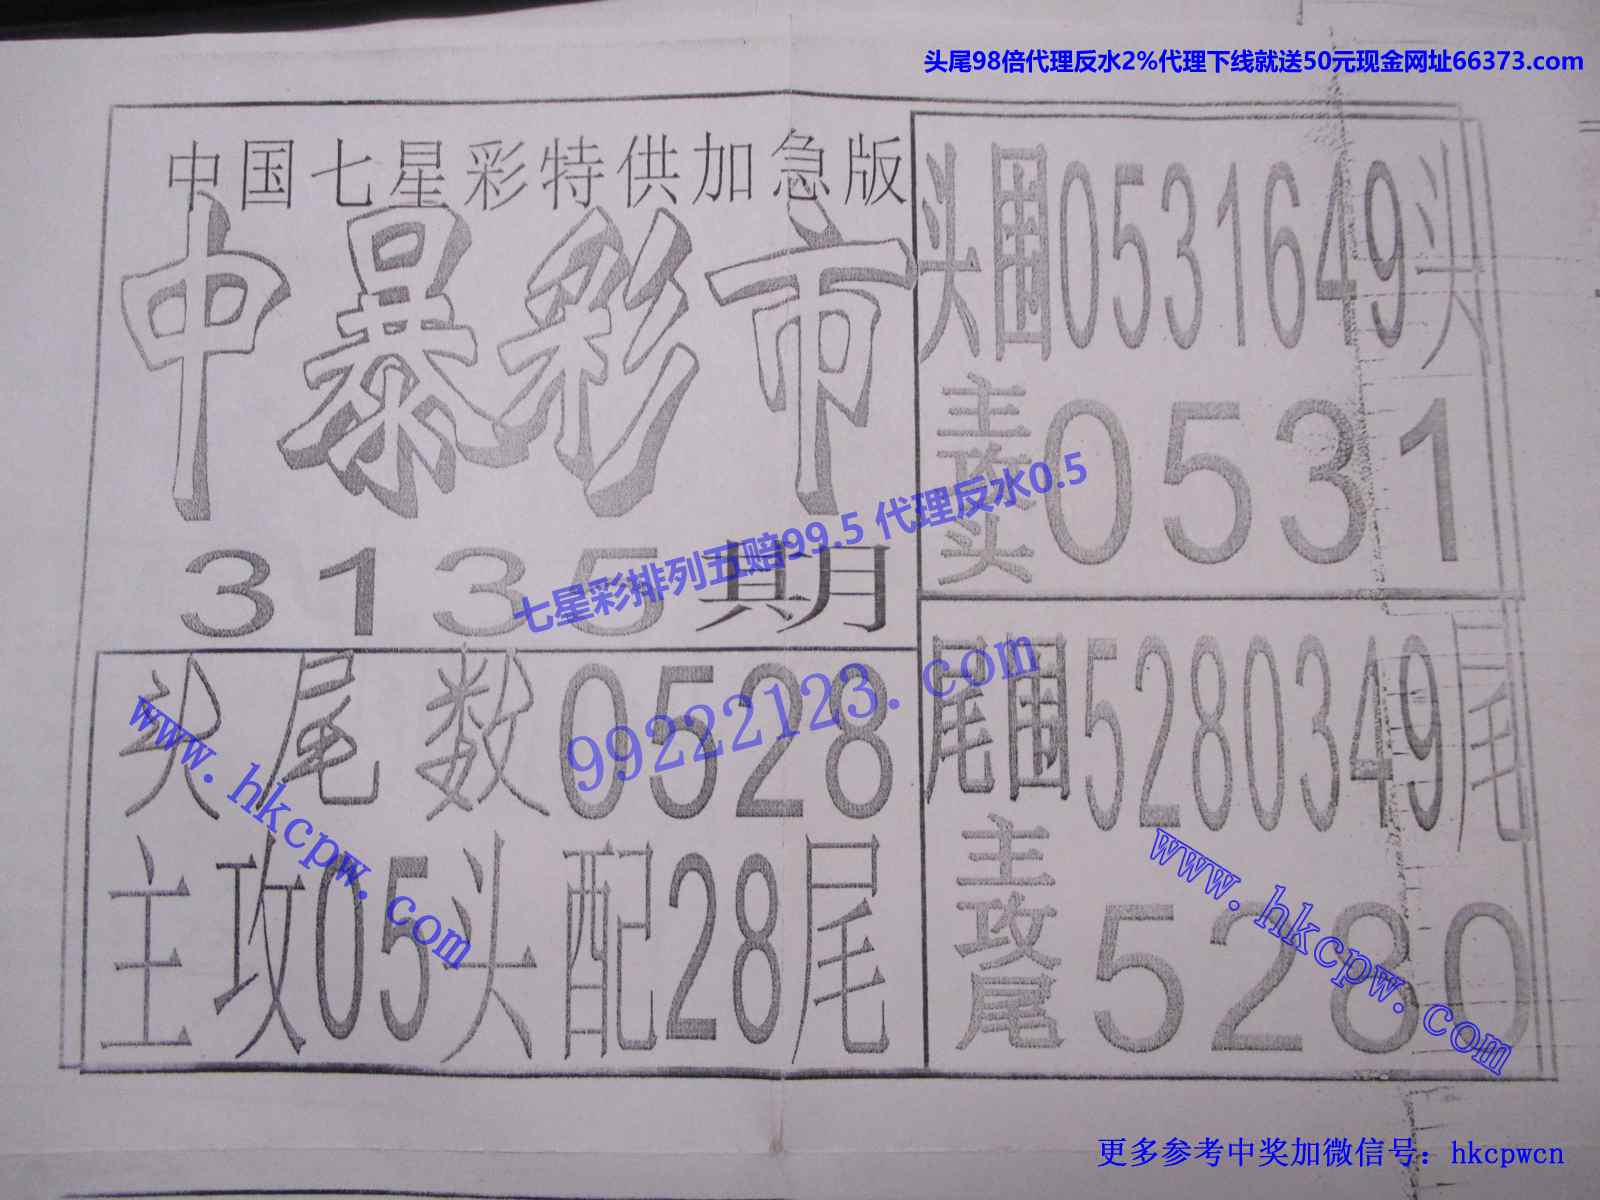 头尾98倍代理反水2%代理下线就送50元现金网址66373.com
中国七星彩特供加急版
中暴彩市
3135期
头围0531649头
主攻头0531
七星彩排列五赔99.5 代理反水0.5
头尾数0528
主攻05头配28尾
尾围5280349尾
主攻尾5280
99222123.com
www.hkcpw.com
www.hkcpw.com
更多参考中奖加微信号：hkcpwcn